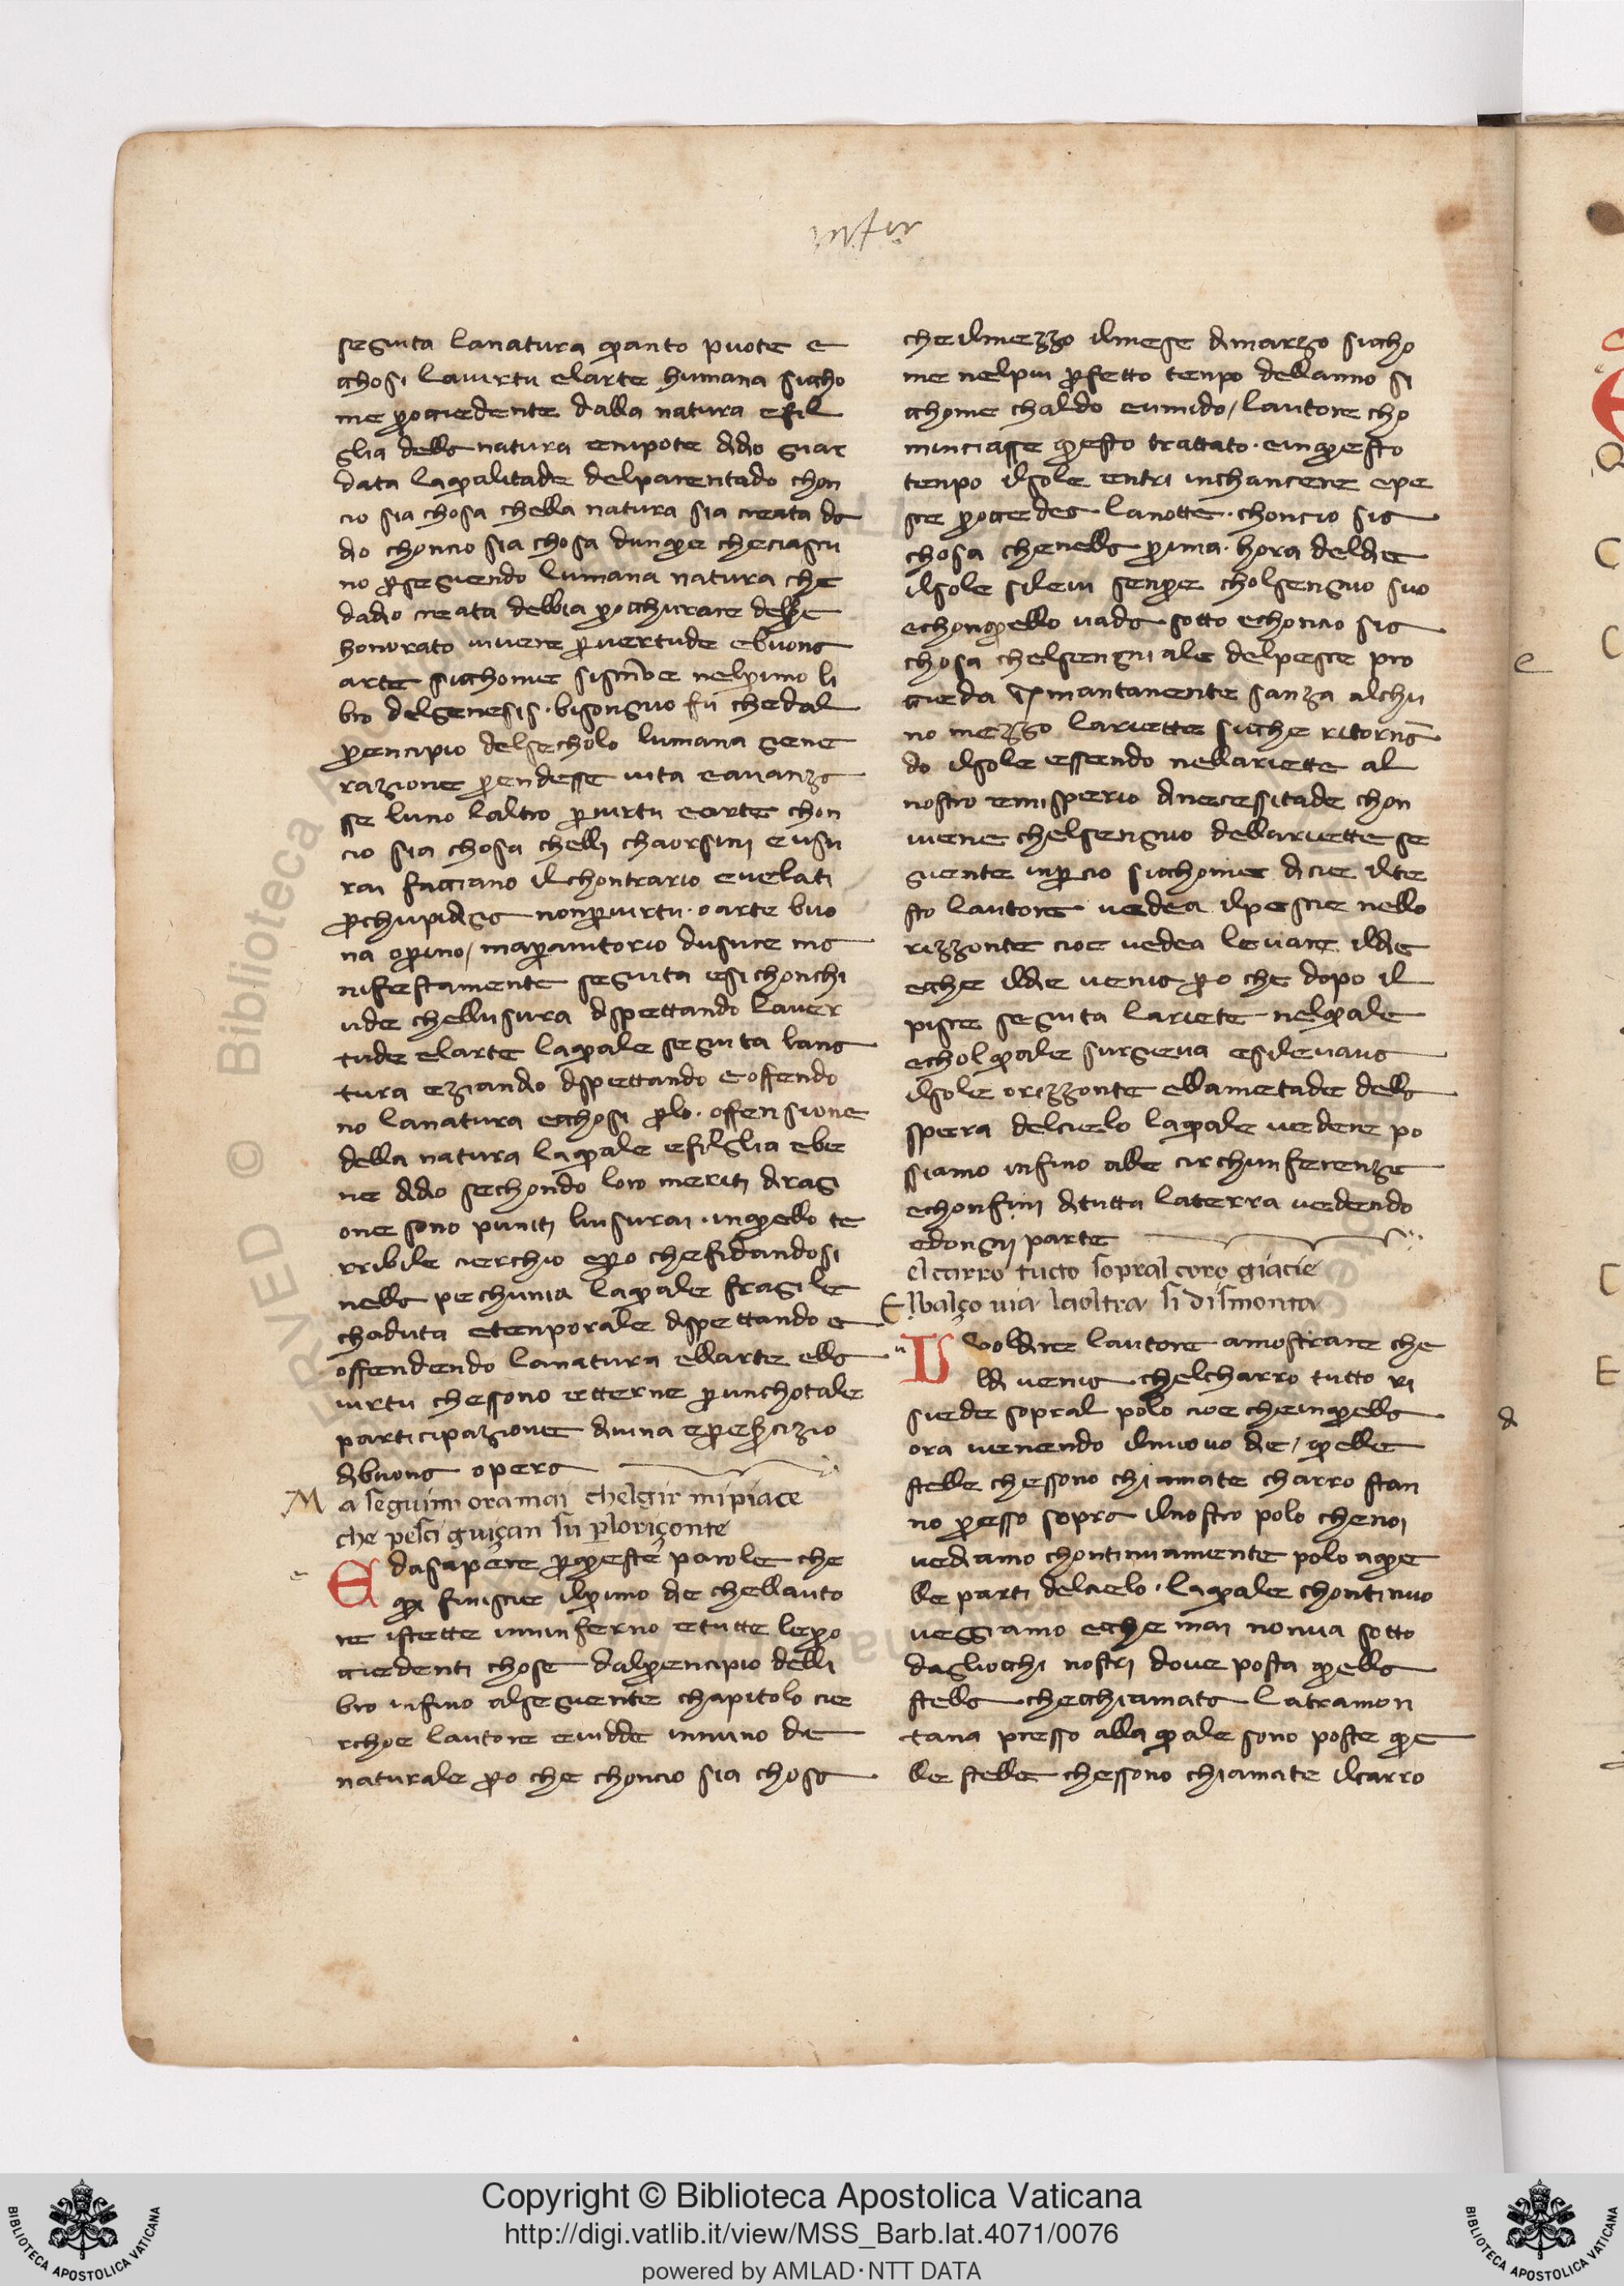 seguita lanatura quanto puote e
cchosi lauirtu elarte humana sicho
me procciedente dalla natura efil
glia della natura enipote didio guar
data laqualitade delparentado chon
cio sia chosa chella natura sia creata da
dio choncio sia chosa dunque checiascu
no proseguendo lumana natura che
dadio creata debbia procchurare
honorato uiuere per uertude ebuona
arte sicchome nelprimo li
bro delgenesis · bisongnio fu chedal
prencipio delsecholo lumana gene
razione prendesse uita eauanza
sse luno laltro per uirtu earte chon
cio sia chosa chelli chaorsini eusu
rai facciano ilchontrario euelati
perchupidiga nonperuirtu · oarte buo
na oprino / maperauitorio dusure ma
nifestamente seguita esichonchi
ude chellusura dispettando lauer
tude elarte laquale seguita lana
tura eziandio dispettando eoffendo
no lanatura ecchosi perlo · offensione
della natura laquale efilglia ebe
ne didio sechondo loro meriti dirag
one sono puniti liusurai · inquello te
rribile cierchio epero chefidandosi
nella pechunia laquale fragile
chaduta etenporale dispettando e
offendendo lanatura ellarte ella
uirtu chessono etterne perunchotale
participazione diuina eperesercizio
dibuona opera
Ma seguimi oramai chelgir mipiace
che pesci guiçan su perloriçonte
E dasapere perqueste parole che
qui finiscie ilprimo die chellauto
re istette inninferno etutte lepro
cciedenti chose dalprencipio delli
bro infino alseguente chapitolo cie
rchoe lautore euidde innuno die
naturale pero che choncio sia chosa
cheilmezzo ilmese dimarzo siccho
me nelpiu perfetto tenpo dellanno si
cchome chaldo eumido / lautore cho
minciasse questo trattato · einquesto
tenpo ilsole entri inchancere epe
sce proccedea lanotte · choncio sia
chosa chenella prima · hora deldie
ilsole silieui senpre cholsengnio suo
echonquello uada sotto echoncio sia
chosa chelsengniale delpesce pro
cieda inmantanente sanza alchu
no mezzo lariette sicche ritorna
do ilsole essendo nellariette al
nostro emisperio dinecessitade chon
uiene chelsengnio dellariette se
guente inpercio sicchome dicie ilte
sto lautore uedea ilpescie nello
rizzonte cioe uedea leuare ildie
ecche ildie uenia pero che dopo il
pisce seguita lariete nelquale
echolquale surgeua esileuaua
ilsole orizzonte ellametade della
spera delcielo laquale uedere po
ssiamo infino alle circhunferenze
echonfini ditutta laterra uedendo
edongni parte
el carro tutto sopral coro giacie
E lbalço uia laoltra si dismonta
U voldire lautore amostrare che
ldi uenia chelcharro tutto ri
siede sopral polo cioe cheinquella
ora uenendo ilnuouo die / quelle
stelle chessono chiamate charro stan
no presso sopra ilnostro polo chenoi
uediamo chontinuamente polo aque
lle parti delcielo · laquale chontinuo
ueggiamo ecche mai nonua sotto
dagliocchi nostri doue posta quella
stella checchiamata latramon
tana presso alla quale sono poste que
lle stelle chessono chiamate ilcarro
Copyright © Biblioteca Apostolica Vaticana
http://digi.vatlib.it/view/MSS_Barb.lat.4071/0076
powered by AMLAD·NTT DATA
BIBLIOTECA APOSTOLICA VATICANA
BIBLIOTECA APOSTOLICA VATICANA